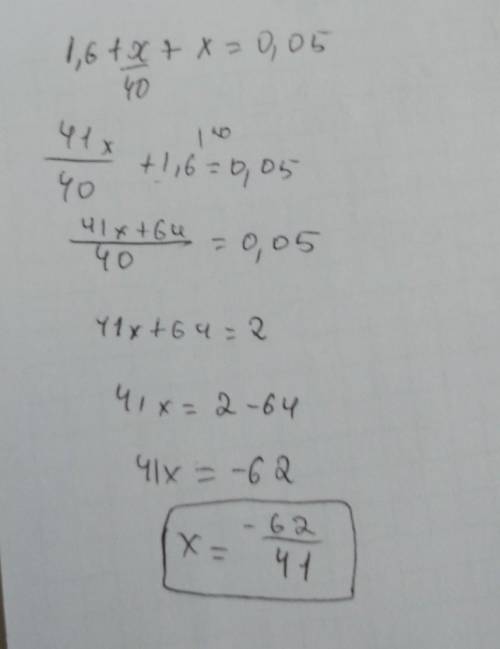 1,6 + x/40 + x = 0,05
41x/40 + 1,6 |40 = 0,05
41x+64/40 = 0,05
41x+64 = 2
41x = 2-64
41x = -62
x = -62/41